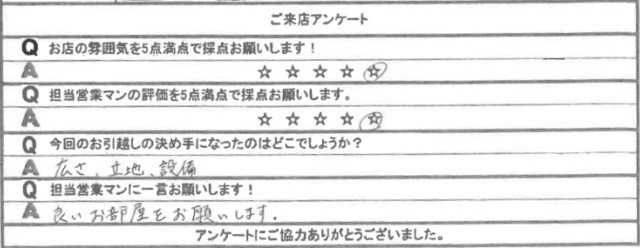 ご来店アンケート
Q お店の雰囲気を5点満点で採点お願いします！
A ☆ ☆ ☆ ☆ ☆
Q 担当営業マンの評価を5点満点で採点お願いします。
A ☆ ☆ ☆ ☆ ☆
Q 今回のお引越しの決め手になったのはどこでしょうか？
A 広さ、立地、設備
Q 担当営業マンに一言お願いします！
A 良いお部屋をお願いします.
アンケートにご協力ありがとうございました。